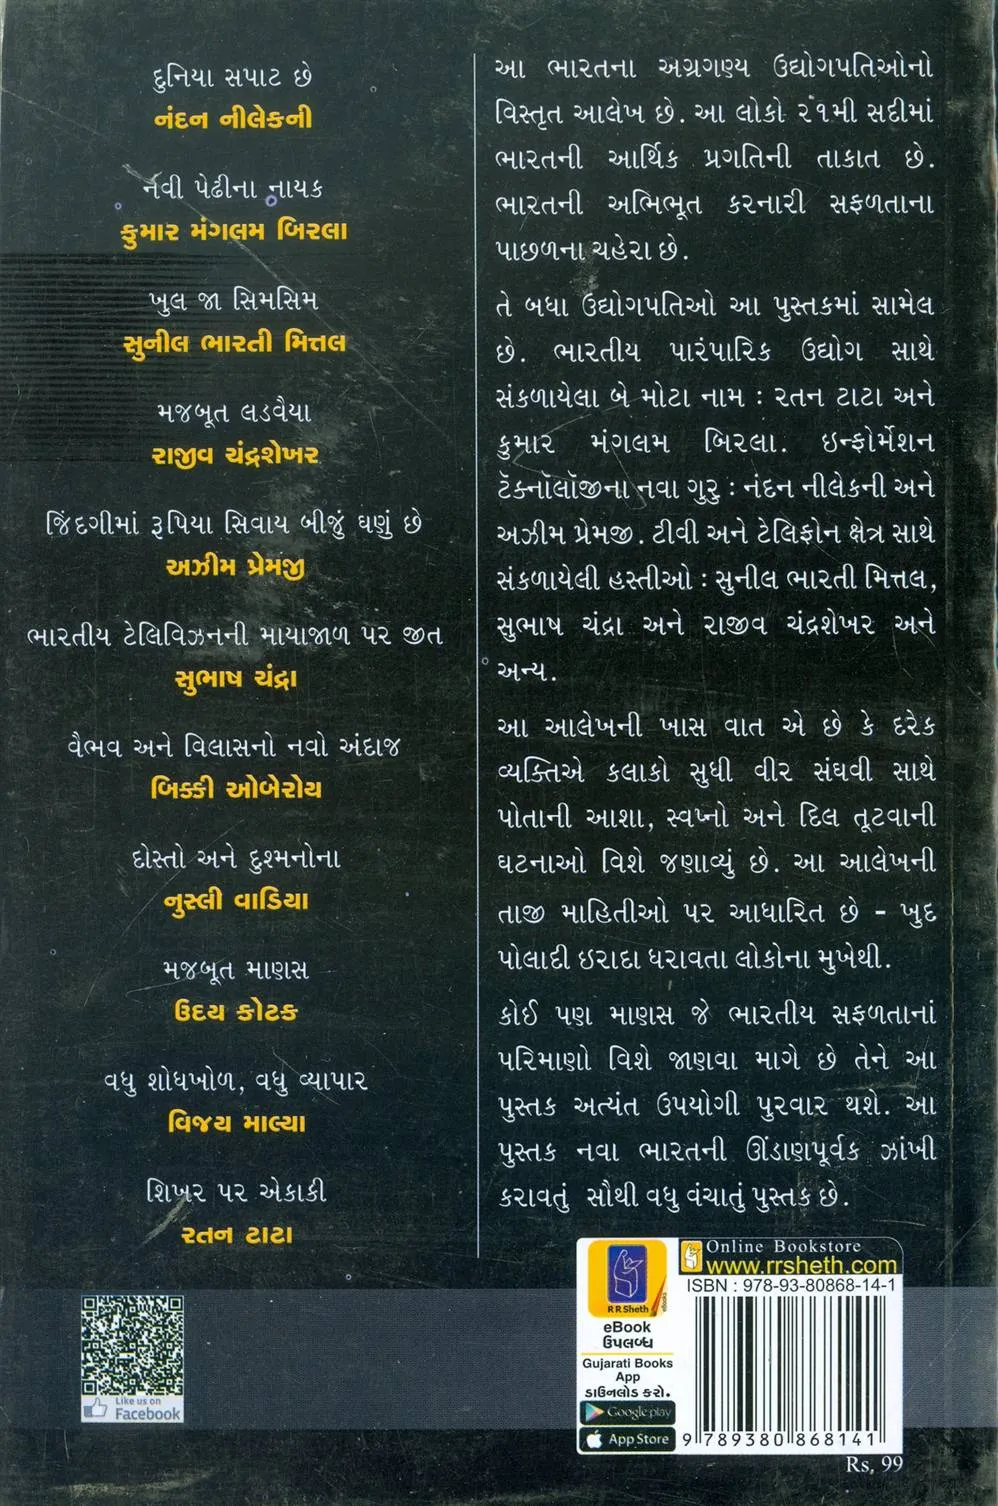 દુનિયા સપાટ છે
નંદન નીલેકની
નવી પેઢીના નાયક
કુમાર મંગલમ બિરલા
ખુલ જા સિમસિમ
સુનીલ ભારતી મિત્તલ
મજબૂત લડવૈયા
રાજીવ ચંદ્રશેખર
જિંદગીમાં રૂપિયા સિવાય બીજું ઘણું છે
અઝીમ પ્રેમજી
ભારતીય ટેલિવિઝનની માયાજાળ પર જીત
સુભાષ ચંદ્રા
વૈભવ અને વિલાસનો નવો અંદાજ
બિક્કી ઓબેરોય
દોસ્તો અને દુશ્મનોના
નુસ્લી વાડિયા
મજબૂત માણસ
ઉદય કોટક
વધુ શોધખોળ, વધુ વ્યાપાર
વિજય માલ્યા
શિખર પર એકાકી
રતન ટાટા
આ ભારતના અગ્રગણ્ય ઉદ્યોગપતિઓનો
વિસ્તૃત આલેખ છે. આ લોકો ૨૧મી સદીમાં
ભારતની આર્થિક પ્રગતિની તાકાત છે.
ભારતની અભિભૂત કરનારી સફળતાના
પાછળના ચહેરા છે.
તે બધા ઉદ્યોગપતિઓ આ પુસ્તકમાં સામેલ
છે. ભારતીય પારંપારિક ઉદ્યોગ સાથે
સંકળાયેલા બે મોટા નામ : રતન ટાટા અને
કુમાર મંગલમ બિરલા. ઇન્ફોર્મેશન
ટૅક્નૉલૉજીના નવા ગુરુ : નંદન નીલેકની અને
અઝીમ પ્રેમજી. ટીવી અને ટેલિફોન ક્ષેત્ર સાથે
સંકળાયેલી હસ્તીઓ : સુનીલ ભારતી મિત્તલ,
સુભાષ ચંદ્રા અને રાજીવ ચંદ્રશેખર અને
અન્ય.
આ આલેખની ખાસ વાત એ છે કે દરેક
વ્યક્તિએ કલાકો સુધી વીર સંઘવી સાથે
પોતાની આશા, સ્વપ્નો અને દિલ તૂટવાની
ઘટનાઓ વિશે જણાવ્યું છે. આ આલેખની
તાજી માહિતીઓ પર આધારિત છે - ખુદ
પોલાદી ઇરાદા ધરાવતા લોકોના મુખેથી.
કોઈ પણ માણસ જે ભારતીય સફળતાનાં
પરિમાણો વિશે જાણવા માગે છે તેને આ
પુસ્તક અત્યંત ઉપયોગી પુરવાર થશે. આ
પુસ્તક નવા ભારતની ઊંડાણપૂર્વક ઝાંખી
કરાવતું સૌથી વધુ વંચાતું પુસ્તક છે.
Like us on
Facebook
R R Sheth
eBooks
eBook
ઉપલબ્ધ
Gujarati Books
App
ડાઉનલોડ કરો.
Google play
App Store
Online Bookstore
www.rrsheth.com
ISBN : 978-93-80868-14-1
9 789380 868141
Rs. 99